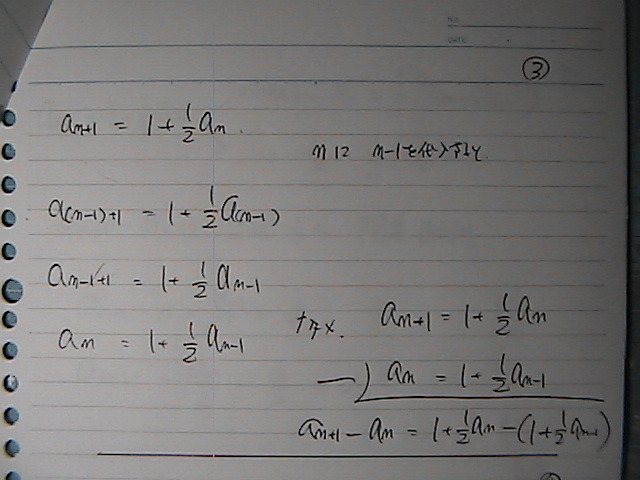 NO.
DATE
③
aₙ₊₁ = 1 + ½aₙ.
nに n-1を代入すると
a₍ₙ₋₁₎₊₁ = 1 + ½a₍ₙ₋₁₎
aₙ₋₁₊₁ = 1 + ½aₙ₋₁
aₙ = 1 + ½aₙ₋₁
aₙ₊₁ = 1 + ½aₙ
−) aₙ = 1 + ½aₙ₋₁
aₙ₊₁ − aₙ = 1 + ½aₙ − (1 + ½aₙ₋₁)